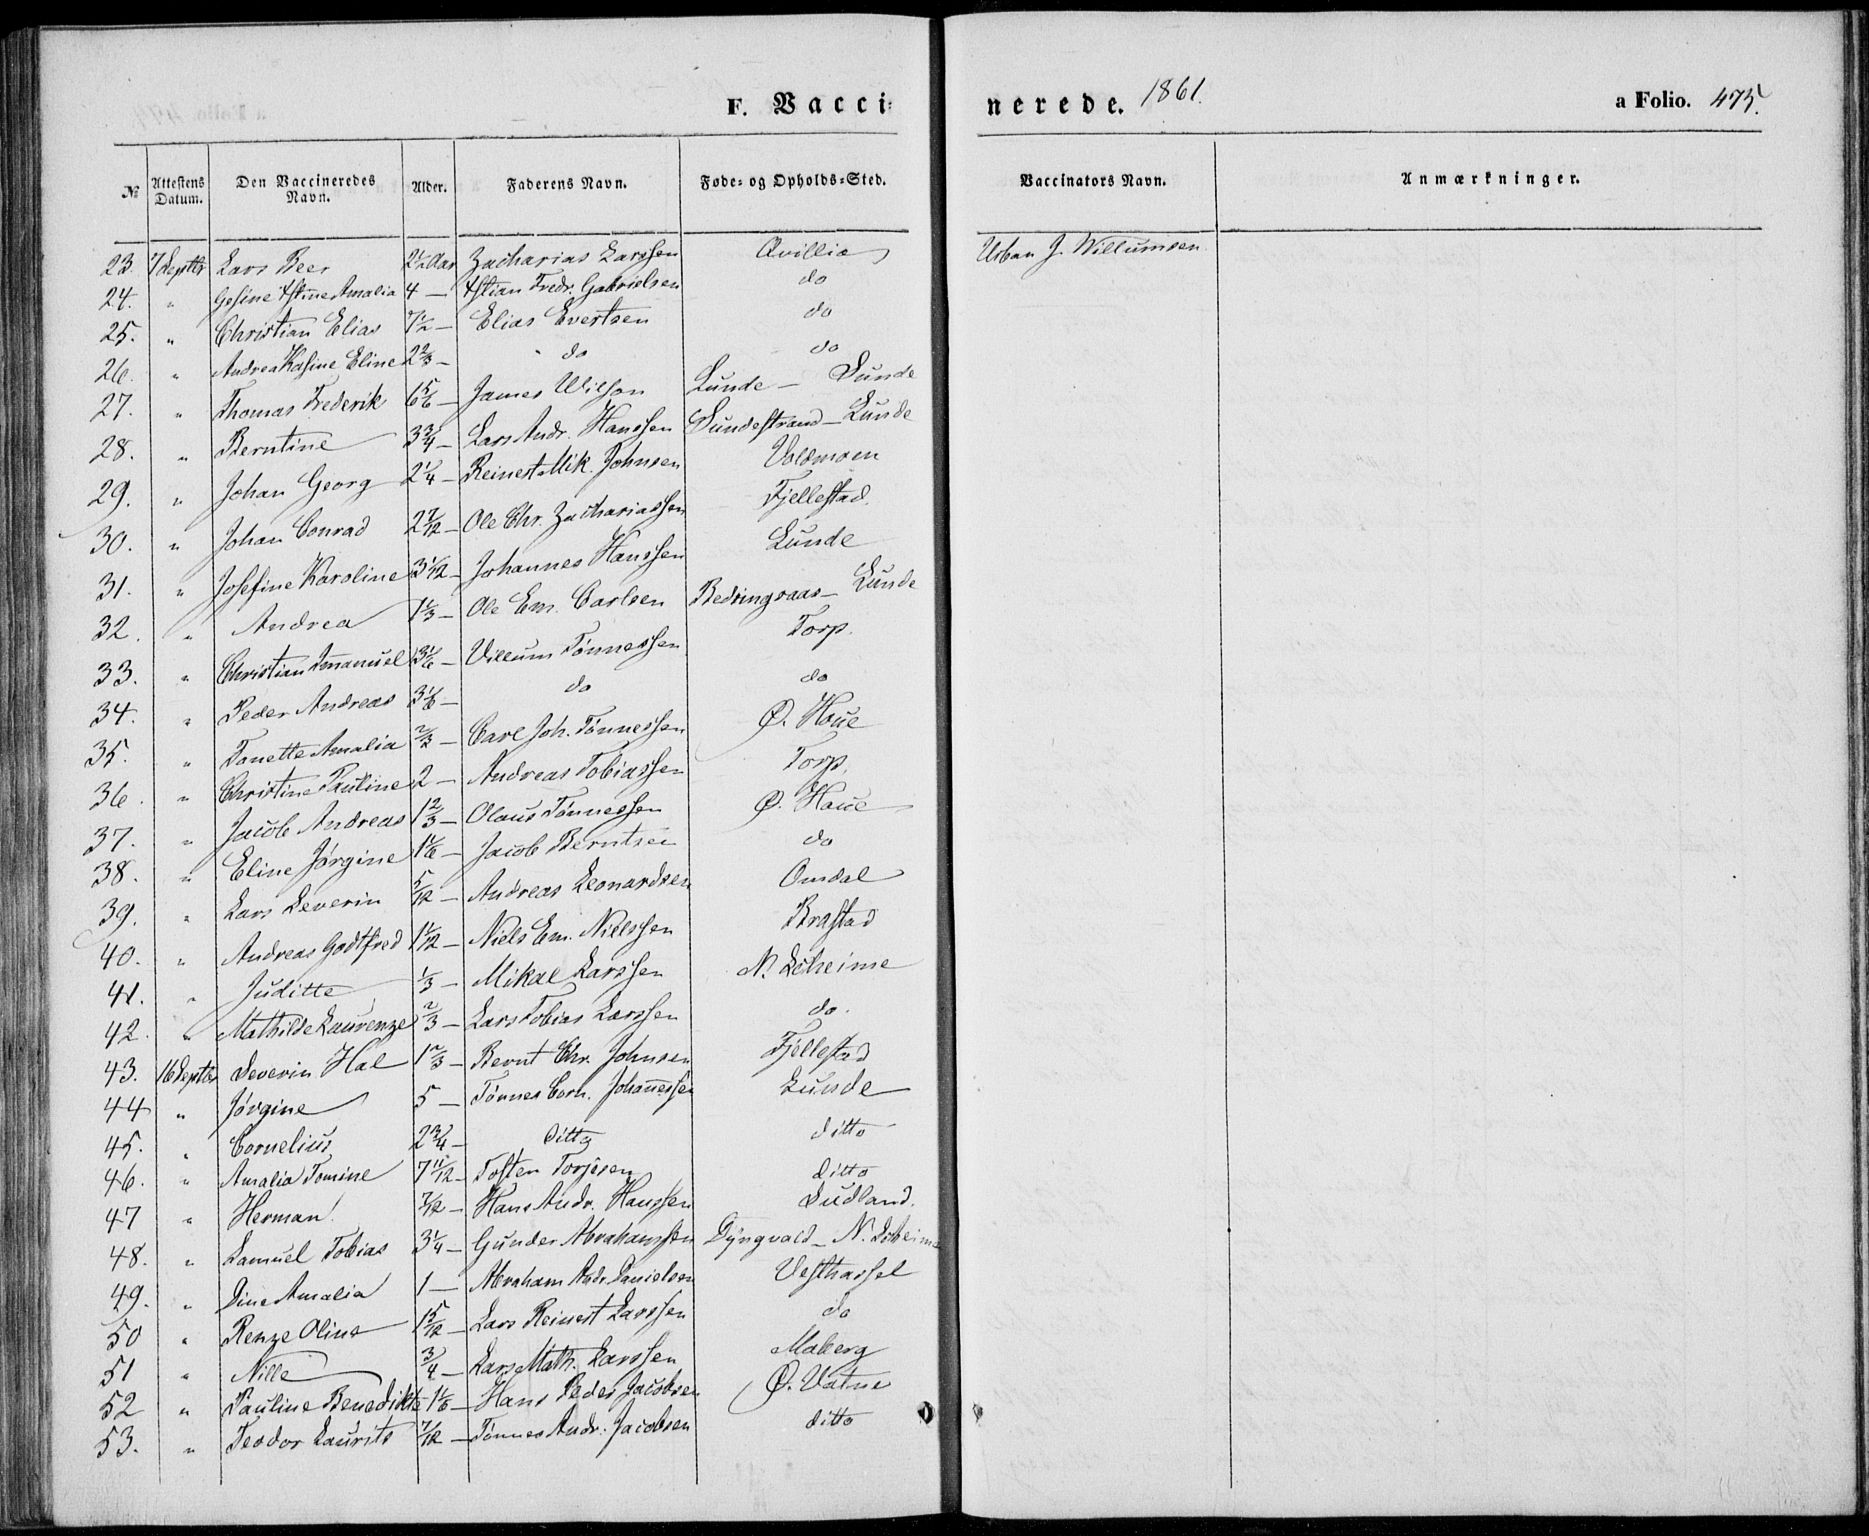 F. Vacci-
nerede. 1861.
a Folio. 475.
No Attestens Datum. Den Vaccineredes Navn. Alder. Faderens Navn. Føde- og Opholds-Sted. Vaccinators Navn. Anmærkninger.
23. 7 Septbr Lars Beer 2½ Aar Zacharias Larssen Qvillia Urban J. Willumsen
24. " Gesine Xstine Amalia 4 — Xstian Fredr. Gabrielsen do
25. " Christian Elias 7½ — Elias Evertsen do
26. " Andrea Eline 2⅔ — do do
27. " Thomas Frederik 6⅚ — James Wilson Lunde — Sunde
28. " Berntine 3¾ — Lars Andr. Hanssen Sundestrand — Lunde
29. " Johan Georg 2¼ — Reinert Mik. Johnsen Voldmoen
30. " Johan Conrad 2 7/12 — Ole Chr. Zachariassen Fjellestad.
31. " Josefine Karoline 3 1/12 — Johannes Hanssen Lunde
32. " Andrea 1⅓ — Ole Em. Carlsen Lunde
33. " Christian Imanuel 3⅙ — Villum Tønnessen Torp.
34. " Peder Andreas 3⅙ — do do
35. " Tonette Amalia ⅔ — Carl Joh. Tønnessen Ø. Haue
36. " Christine Pauline 2 — Andreas Tobiassen Torp.
37. " Jacob Andreas 1⅔ — Olaus Tønnessen Ø. Haue
38. " Eline Jørgine 1⅙ — Jacob Berntsen do
39. " Lars Severin 5/12 — Andreas Leonardsen Omdal
40. " Andreas Godtfred 1 1/12 — Niels Em. Nielssen Brastad
41. " Juditte ⅓ — Mikal Larssen N. Skeime
42. " Mathilde Laurenze ⅔ — Lars Tobias Larssen do.
43. 16 Septbr Severin Hal 1⅔ — Bernt Chr. Johnsen Fjellestad
44 " Jørgine 5 — Tønnes Corn. Johannessen Lunde
45. " Cornelius 2¾ — ditto ditto
46. " Amalia Tomine 7 11/12 — Tosten Torjesen ditto
47 " Herman 7/12 — Hans Andr. Hanssen Sudland.
48. " Samuel Tobias 3¼ — Gunder Abrahamssen Dyngvold — N. Skeime
49. " Sine Amalia 1 — Abraham Andr. Danielsen Vesthassel
50 " Renze Oline 1 5/12 — Lars Reinert Larssen do
51 " Nille ¾ — Lars Math. Larssen Maberg
52 " Pauline Benedikte 1⅙ — Hans Peder Jacobsen Ø. Vatne
53. " Teodor Laurits 7/12 — Tønnes Andr. Jacobsen ditto